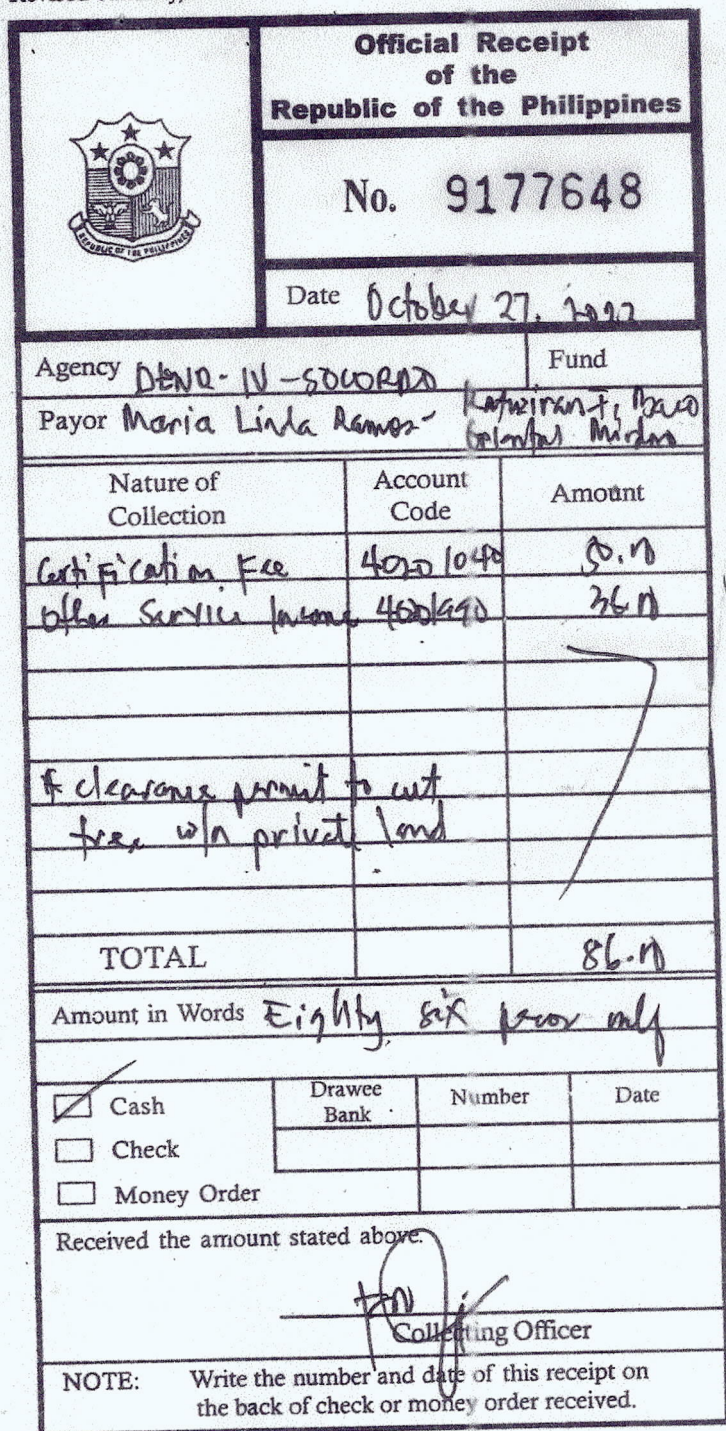 Official Receipt
of the
Republic of the Philippines
REPUBLIC OF THE PHILIPPINES
No. 9177648
Date October 27, 2022
Agency DENR-IV-SOCORRO
Fund
Payor Maria Linda Ramos-
Oriental
Nature of Collection
Account Code
Amount
Certification Fee 40201040 50.00
Other Service Income 40201990 36.00
clearance permit to cut
tree w/n private land
TOTAL 86.00
Amount in Words Eighty six pesos only
Cash
Check
Money Order
Drawee Bank
Number
Date
Received the amount stated above.
Collecting Officer
NOTE: Write the number and date of this receipt on
the back of check or money order received.